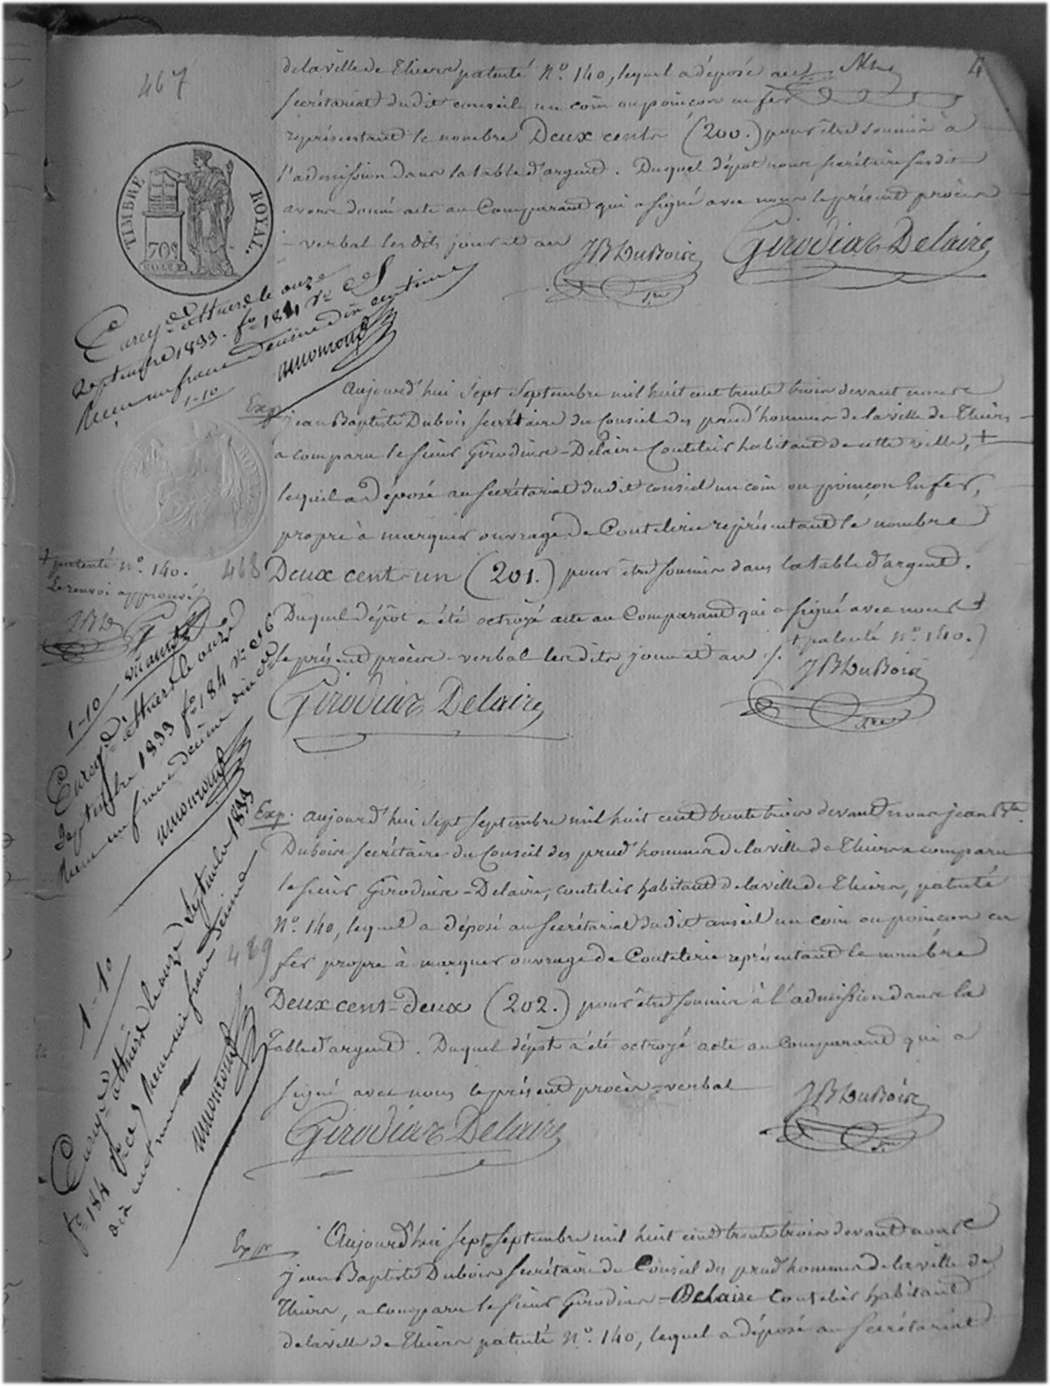 467
4
de la ville de Thiers patenté N.º 140, lequel a déposé au
secrétariat dudit conseil un coin ou poinçon en fer
représentant le nombre Deux cents (200.) pour être soumis à
l'admission dans la table d'argent. Duquel dépôt nous secrétaire susdit
avons donné acte au Comparant qui a signé avec nous le présent procès
- verbal les dits jour et an
JB DuBois
Girodias Delaire
TIMBRE ROYAL.
70c
Enreg.é à Thiers le onze
Septembre 1833. fº 184 Vº
Reçu un franc décime dix centimes
1-10
Exp.
Aujourd'hui Sept Septembre mil huit cent trente trois devant nous
jean Baptiste Dubois secrétaire du Conseil des prud'hommes de la ville de Thiers
a comparu le sieur Girodias-Delaire Coutelier habitant de cette ville, +
lequel a déposé au secrétariat dudit conseil un coin ou poinçon en fer,
propre à marquer ouvrage de Coutellerie représentant le nombre
468 Deux cent-un (201.) pour être soumis dans la table d'argent.
Duquel dépôt a été octroyé acte au Comparant qui a signé avec nous +
+ patenté Nº 140.)
le présent procès-verbal lesdits jour et an /.
JB DuBois
Girodias Delaire
+ patenté nº. 140.
Le renvoi approuvé
JBD
1-10
Enreg.é à Thiers le onze
Septembre 1833 fº 184 Vº
Reçu un franc décime dix
Exp. aujourd'hui Sept Septembre mil huit cent trente trois devant nous jean Bte.
Dubois secrétaire du Conseil des prud'hommes de la ville de Thiers a comparu
le sieur Girodias-Delaire, coutelier habitant de la ville de Thiers, patenté
Nº. 140, lequel a déposé au secrétariat dudit conseil un coin ou poinçon en
469
fer propre à marquer ouvrage de Coutellerie représentant le nombre
Deux cent-deux (202.) pour être soumis à l'admission dans la
Table d'argent. Duquel dépôt a été octroyé acte au Comparant qui a
signé avec nous le présent procès-verbal
JB DuBois
Girodias Delaire
1-10
Enreg.é à Thiers le onze Septembre 1833
fº 184 Reçu un franc décime
dix
Exp.
Aujourd'hui sept Septembre mil huit cent trente trois devant nous
jean Baptiste Dubois Secrétaire du Conseil des prud'hommes de la ville de
Thiers, a comparu le sieur Girodias-Delaire Coutelier habitant
de la ville de Thiers patenté Nº. 140, lequel a déposé au secrétariat